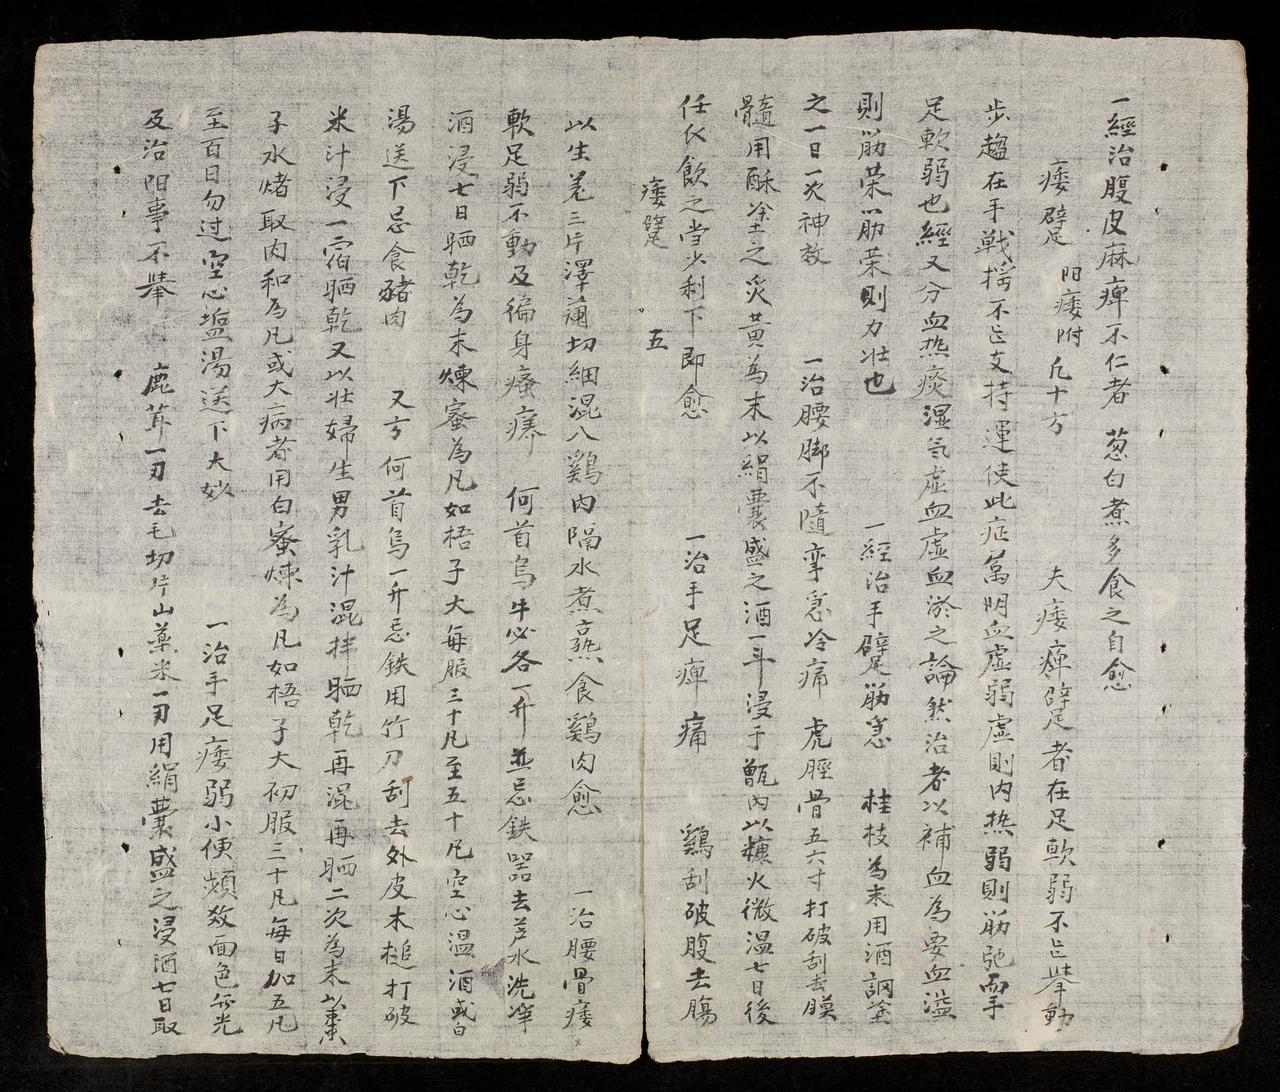 一經治腹皮麻痺不仁者 葱白煮多食之自愈
痿躄 阳痿附 凡十方 夫痿痺躄者在足軟弱不㠯擧動
步趨在手戦揺不㠯支持運使此症萬明血虚弱虚則内热弱則筋弛而手
足軟弱也經又分血热痰湿氣虚血虚血淤之論然治者以補血為要血溢
則筋荣筋荣則力壮也 一經治手躄筋急 桂枝為末用酒調塗
之一日一次神教 一治腰脚不隨挛急冷痛 虎脛骨五六寸打破刮去膜
髓用酥塗之炙黄為末以絹囊盛之酒一斗浸于甑内以糠火微温七日後
任以飲之当少利下即愈 一治手足痺痛 鷄刮破腹去腸
痿躄 五
以生羌三片澤蘭切細混入鷄内隔水煮熟食鷄肉愈 一治腰骨痿
軟足弱不動及徧身瘙痒 何首乌牛必各一升並忌鉄噐去芦水洗淨
酒浸七日晒乾為末煉蜜為凡如梧子大每服三十凡至五十凡空心温酒或白
湯送下忌食豬肉 又方 何首乌一升忌鉄用竹刀刮去外皮木槌打破
米汁浸一宿晒乾又以壮婦生男乳汁混拌晒乾再混再晒二次為末以棗
子水煮取肉和為凡或大病者用白蜜煉為凡如梧子大初服二十凡每日加五凡
至百日勿过空心塩湯送下大妙 一治手足痿弱小便頻数面色無光
及治阳事不擧 鹿茸一刃去毛切片山藥米一刃用絹囊盛之浸酒七日取